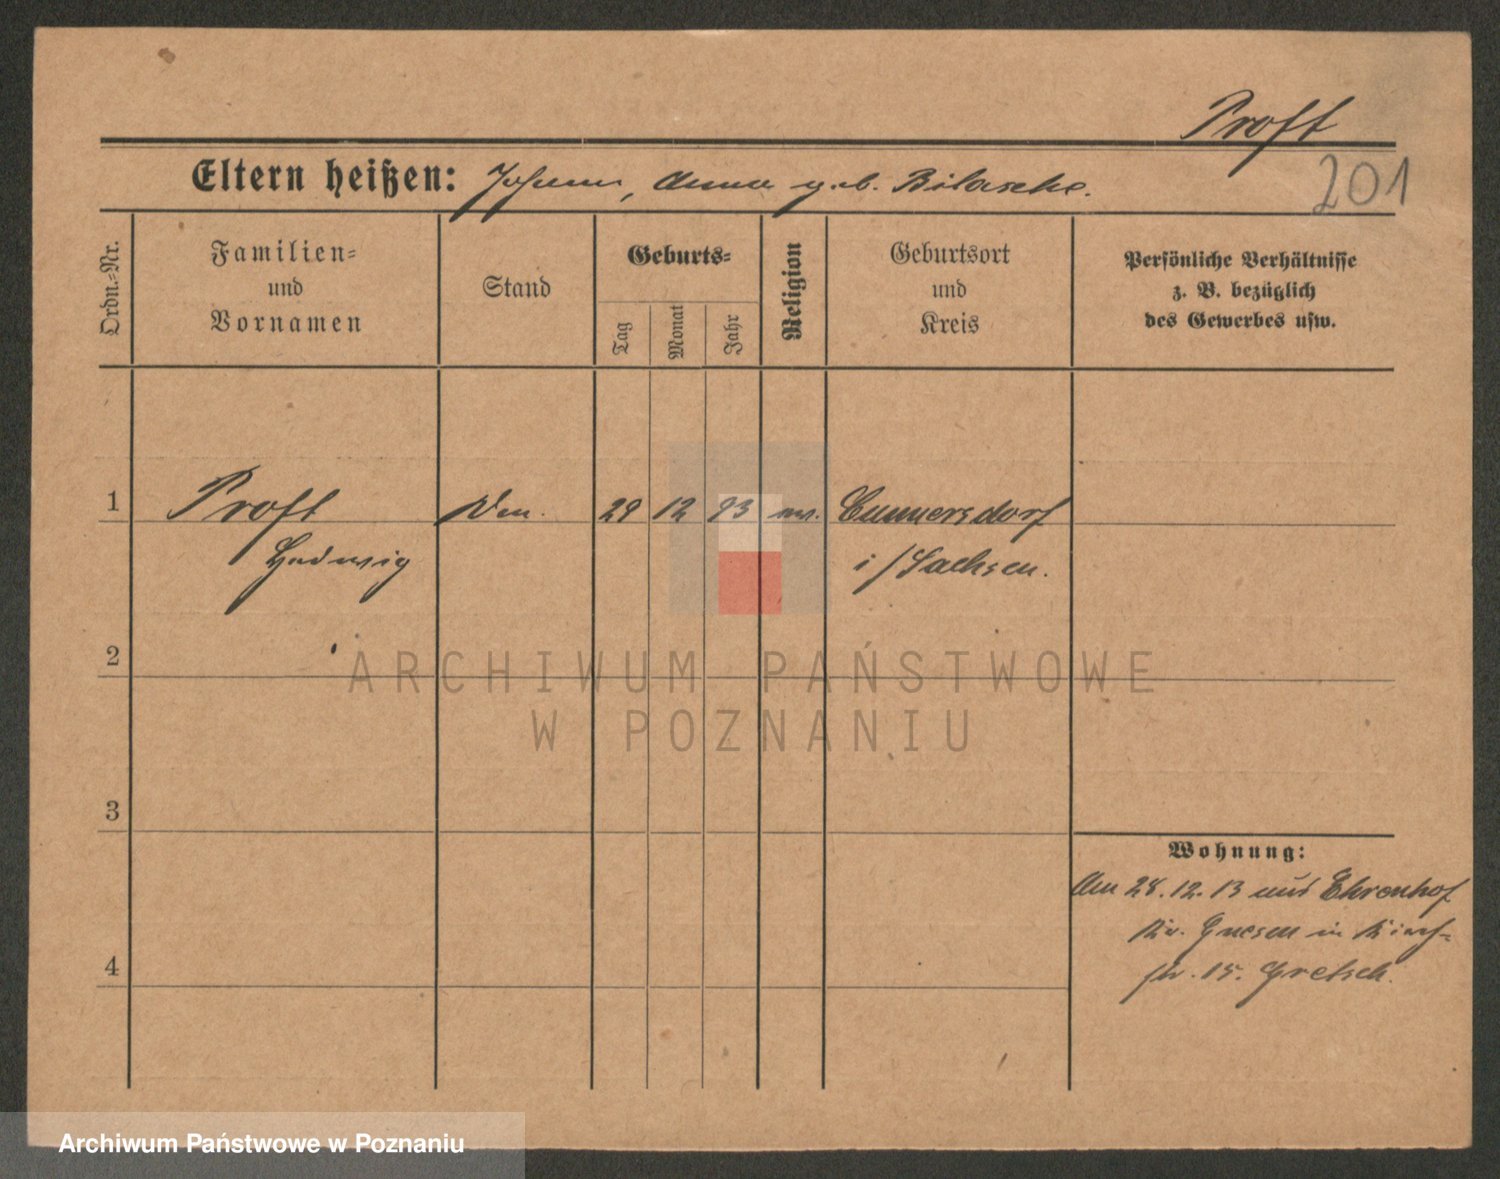 Proft
201
Eltern heißen: Johann, Anna geb. Bilasche.
Ordn.-Nr.
Familien-
und
Vornamen
Stand
Geburts-
Tag
Monat
Jahr
Religion
Geburtsort
und
Kreis
Persönliche Verhältnisse
z. B. bezüglich
des Gewerbes usw.
1
Proft
29 12 93
Cunnersdorf
Hedwig
i/Sachsen.
2
ARCHIWUM PAŃSTWOWE
W POZNANIU
3
Wohnung:
Am 28.12.13 aus Ehrenhof
Kr. Gnesen in
4
str. 15. Gretsch.
Archiwum Państwowe w Poznaniu